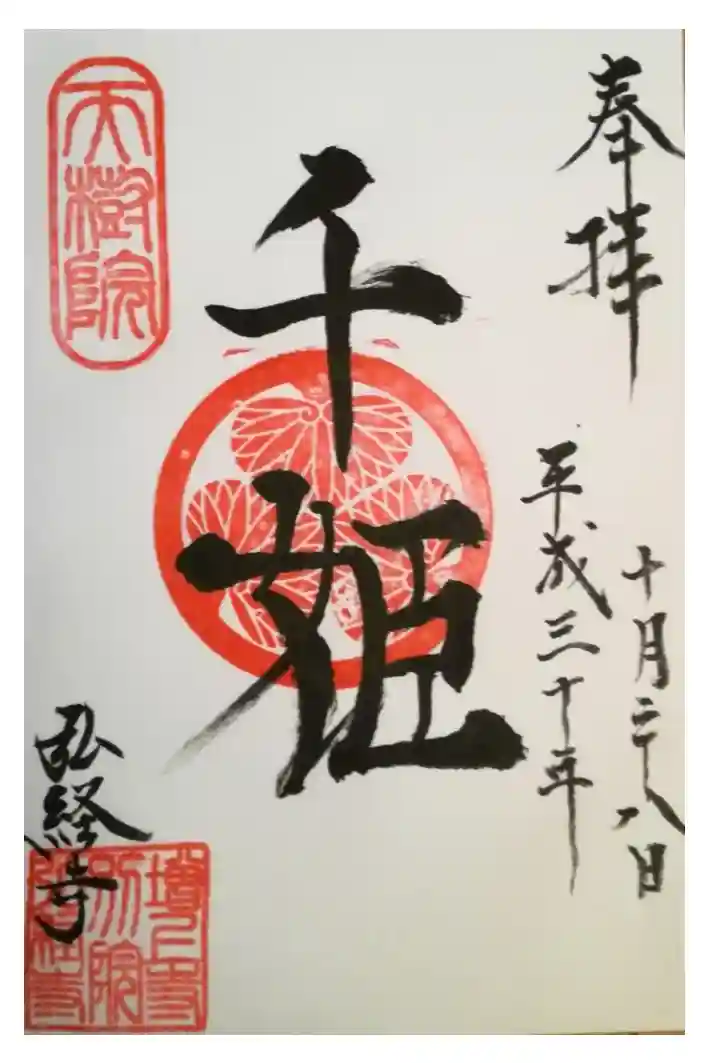 奉拝
十月二十八日
平成三十年
千姫
天樹院
弘経寺